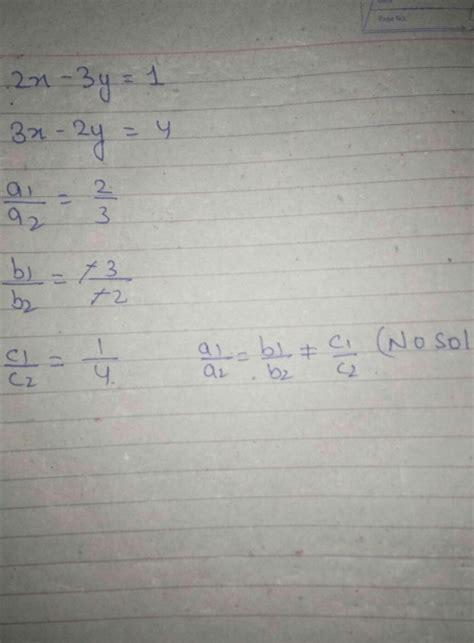 Page No.
2x - 3y = 1
3x - 2y = 4
a1/a2 = 2/3
b1/b2 = -3/-2
c1/c2 = 1/4 a1/a2 = b1/b2 ≠ c1/c2 (No sol